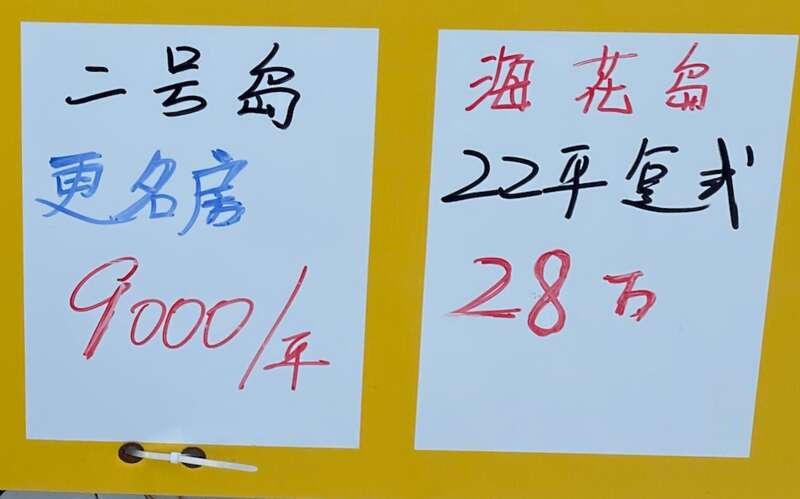 二号岛
更名房
9000/平
海花岛
22平复式
28万